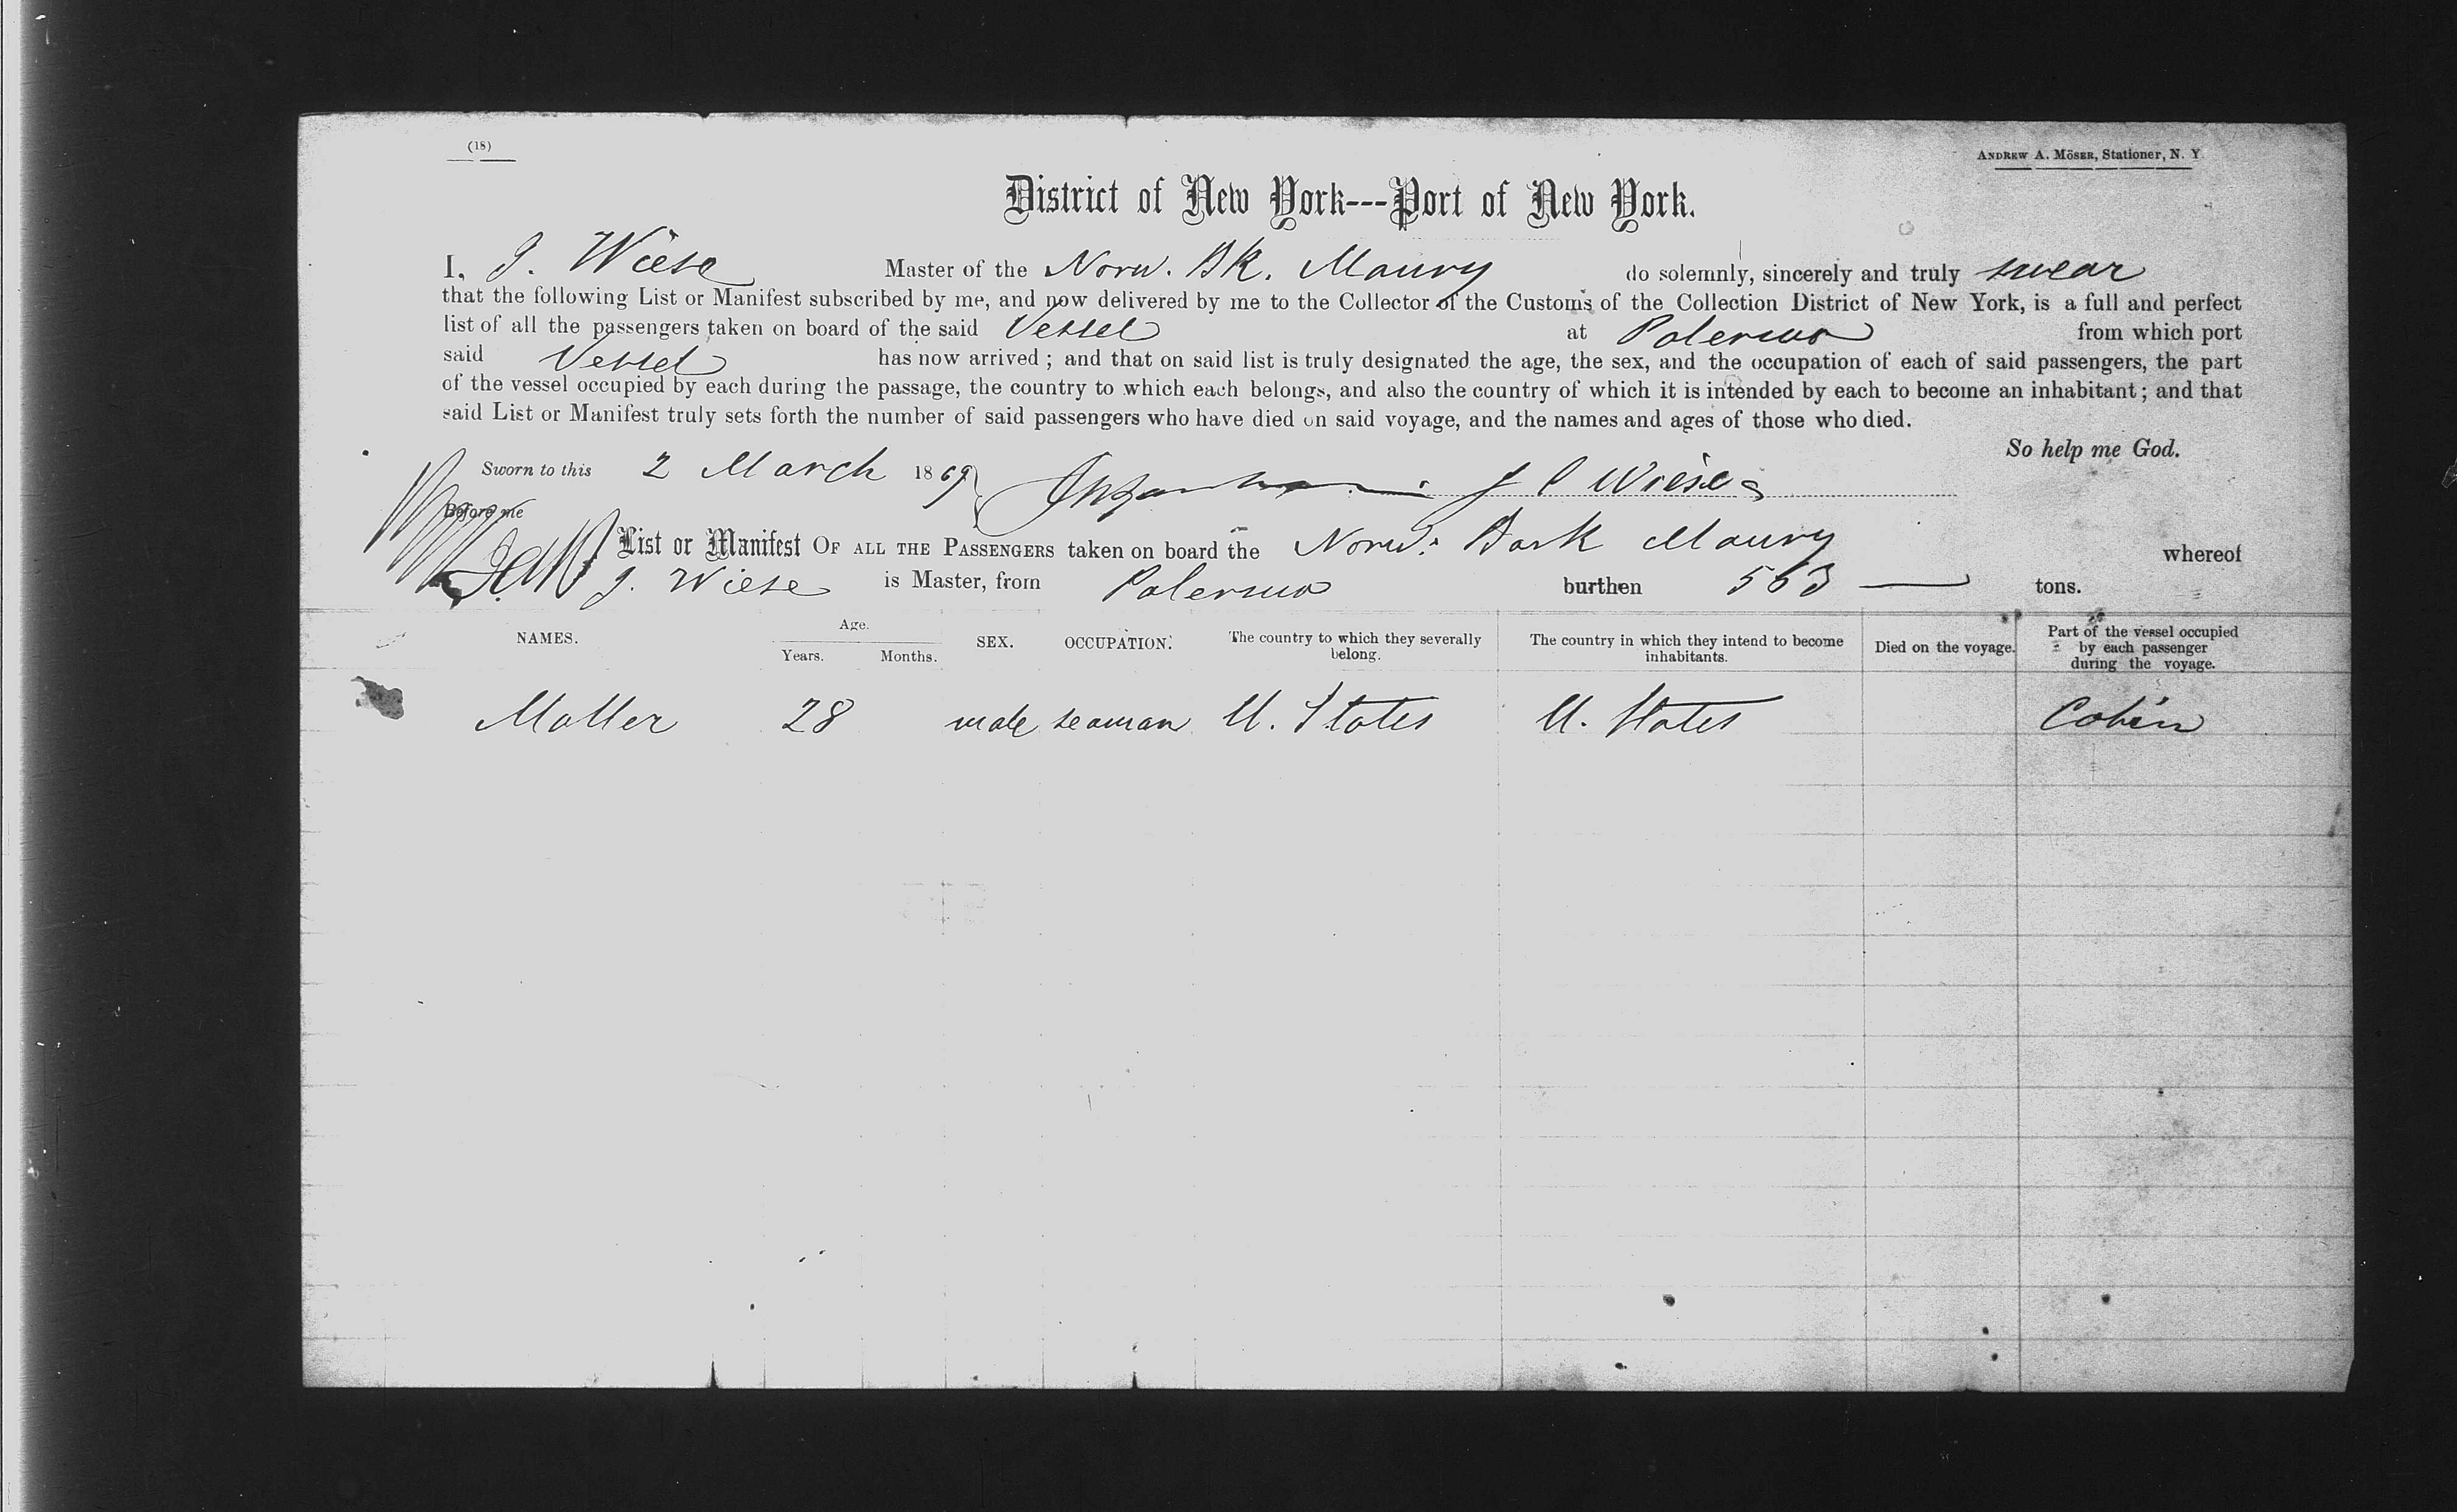 (18)
ANDREW A. MÖSER, Stationer, N. Y.
District of New York---Port of New York.
I, J. Wiese Master of the Norw. Bk. Maury do solemnly, sincerely and truly swear
that the following List or Manifest subscribed by me, and now delivered by me to the Collector of the Customs of the Collection District of New York, is a full and perfect
list of all the passengers taken on board of the said Vessel at Palermo from which port
said Vessel has now arrived; and that on said list is truly designated the age, the sex, and the occupation of each of said passengers, the part
of the vessel occupied by each during the passage, the country to which each belongs, and also the country of which it is intended by each to become an inhabitant; and that
said List or Manifest truly sets forth the number of said passengers who have died on said voyage, and the names and ages of those who died.
So help me God.
Sworn to this 2 March 1869 J Wiese
Before me
List or Manifest OF ALL THE PASSENGERS taken on board the Norw. Bark Maury whereof
J. Wiese is Master, from Palermo burthen 563 tons.
NAMES. Age. Years. Months. SEX. OCCUPATION. The country to which they severally belong. The country in which they intend to become inhabitants. Died on the voyage. Part of the vessel occupied by each passenger during the voyage.
Moller 28 male seaman U. States U. States Cabin